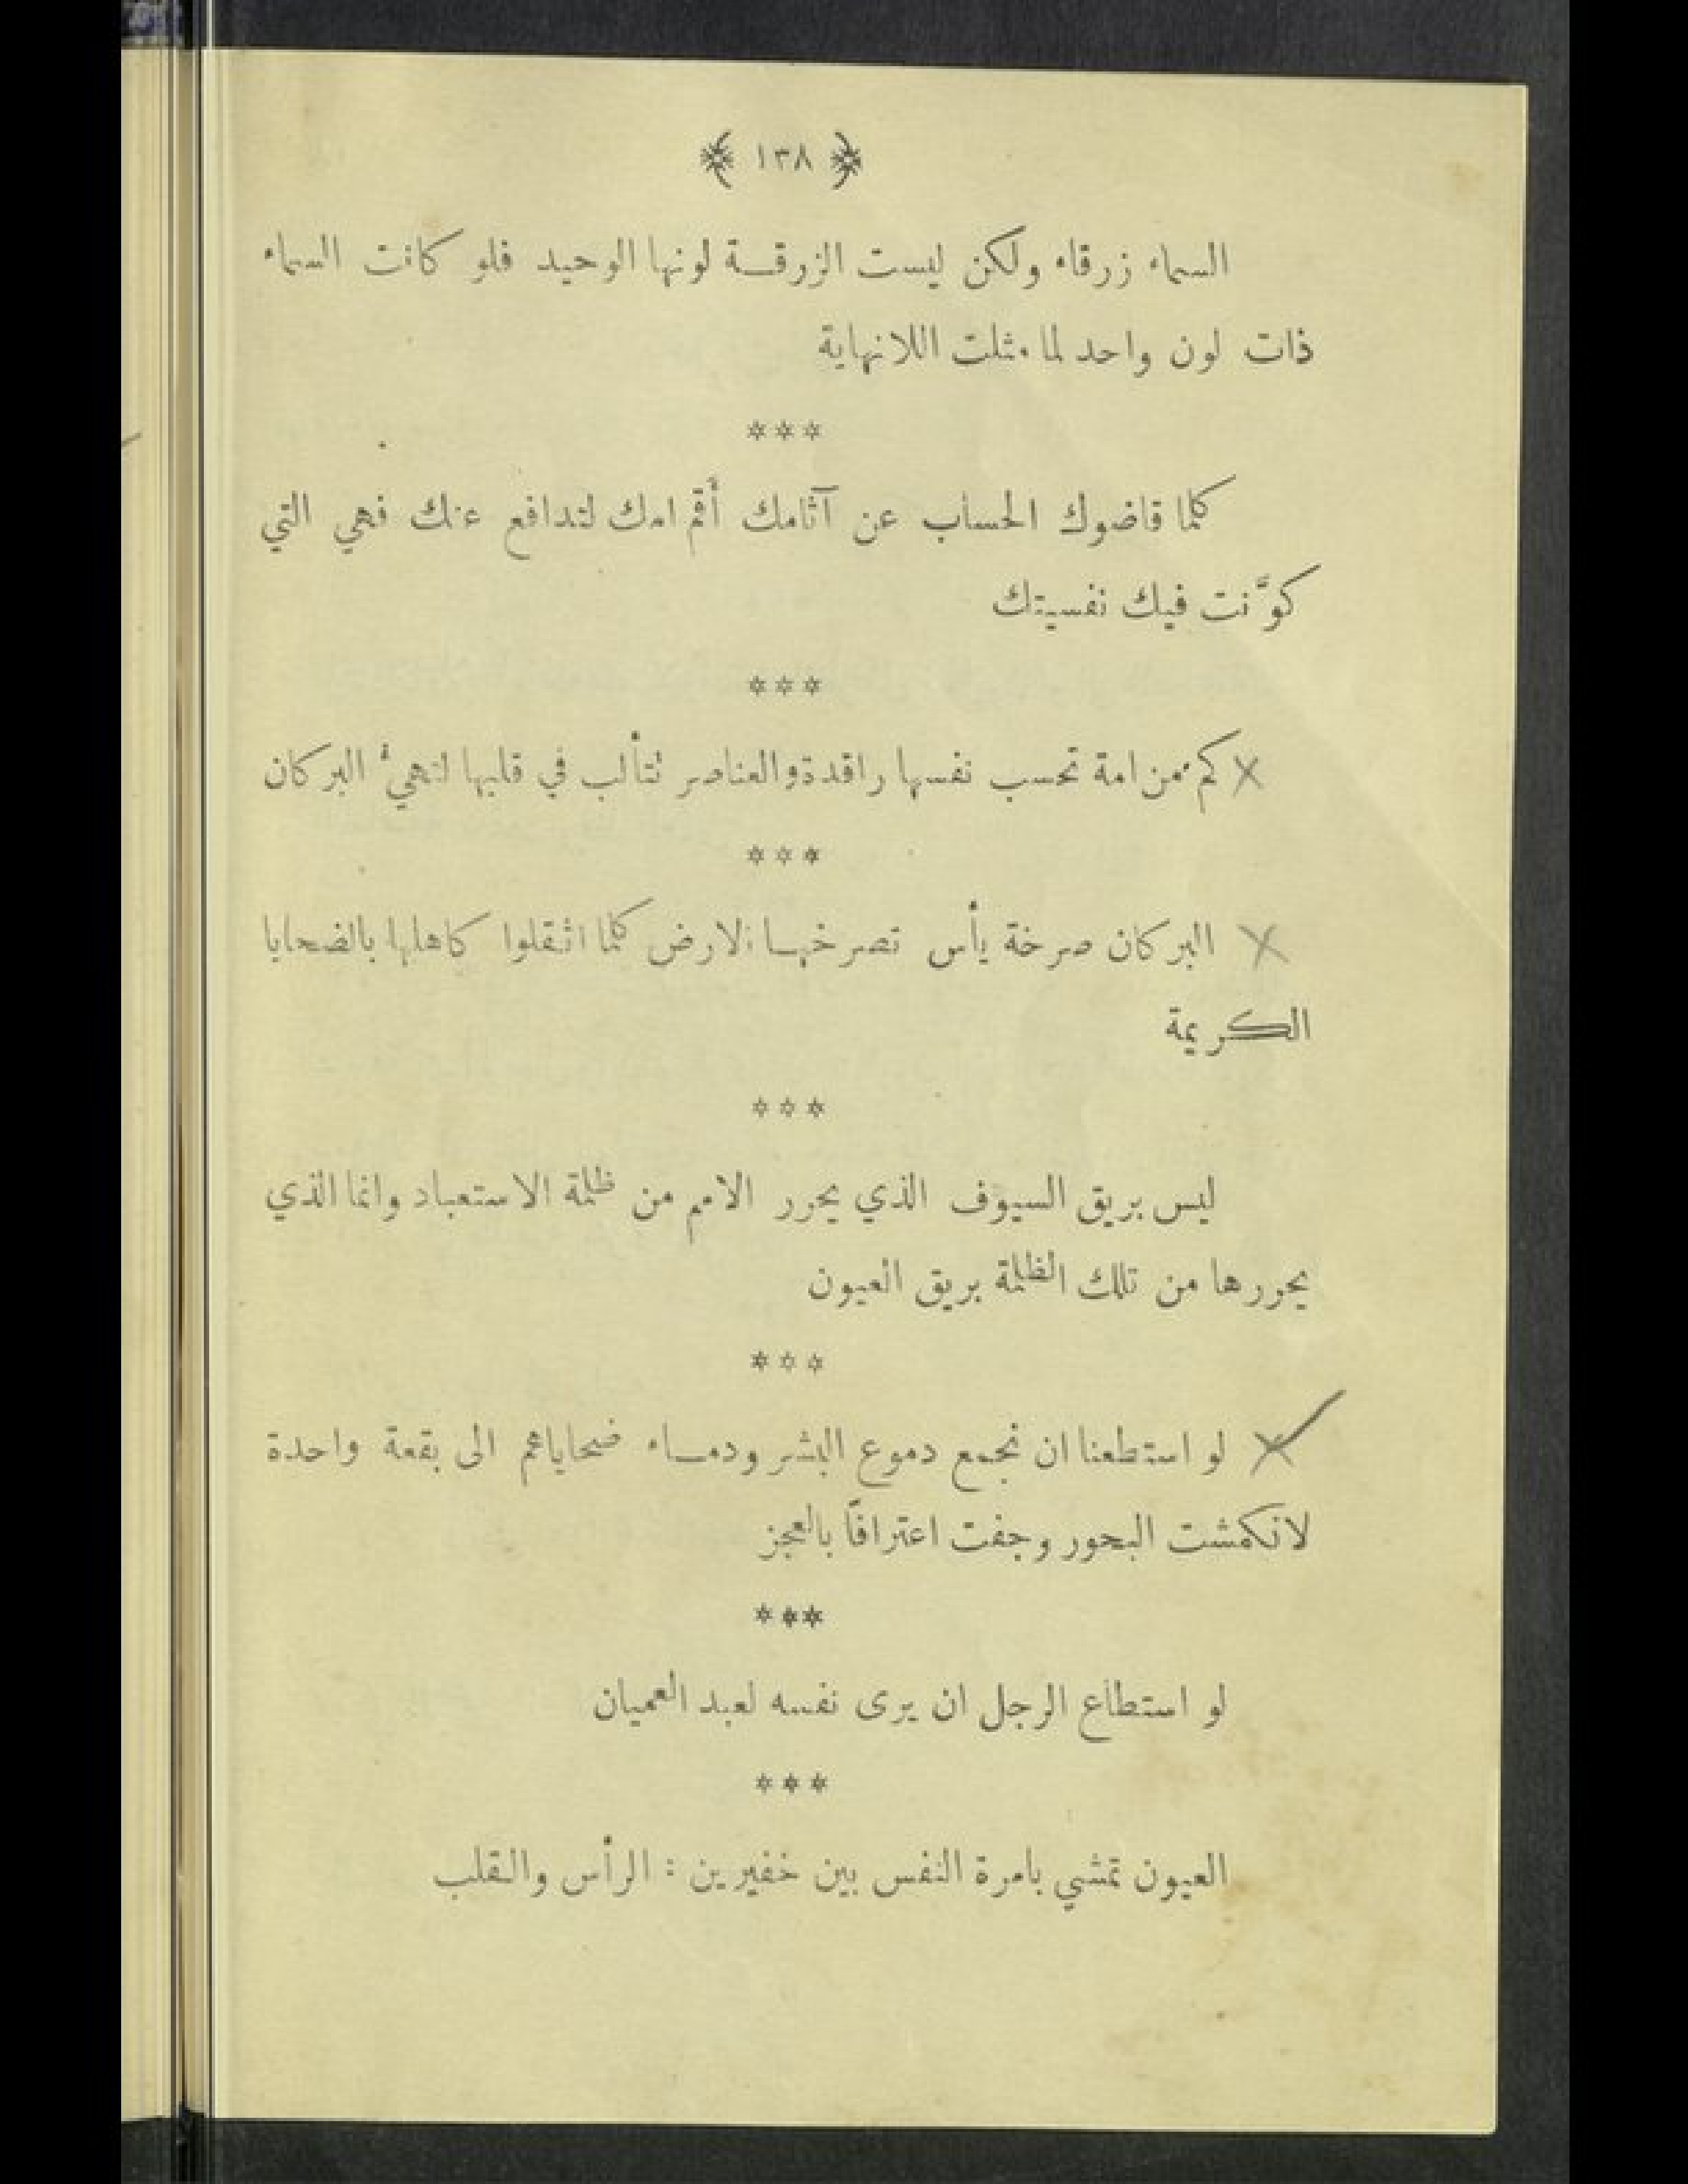 ١٣٨
السماء زرقاء ولكن ليست الزرقة لونها الوحيد فلو كانت السماء
ذات لون واحد لما مثلت اللانهاية
***
كلما قاضوك الحساب عن آثامك أقم امك لتدافع عنك فهي التي
كوَّنت فيك نفسيتك
***
كم من امة تحسب نفسها راقدة والعناصر تتألب في قلبها لتهيئ البركان
***
البركان صرخة يأس تصرخها الارض كلما اثقلوا كاهلها بالضحايا
الكريمة
***
ليس بريق السيوف الذي يحرر الامم من ظلمة الاستعباد وانما الذي
يحررها من تلك الظلمة بريق العيون
***
لو استطعنا ان نجمع دموع البشر ودماء ضحاياهم الى بقعة واحدة
لانكمشت البحور وجفت اعترافاً بالعجز
***
لو استطاع الرجل ان يرى نفسه لعبد العميان
***
العيون تمشي بامرة النفس بين خفيرين : الرأس والقلب